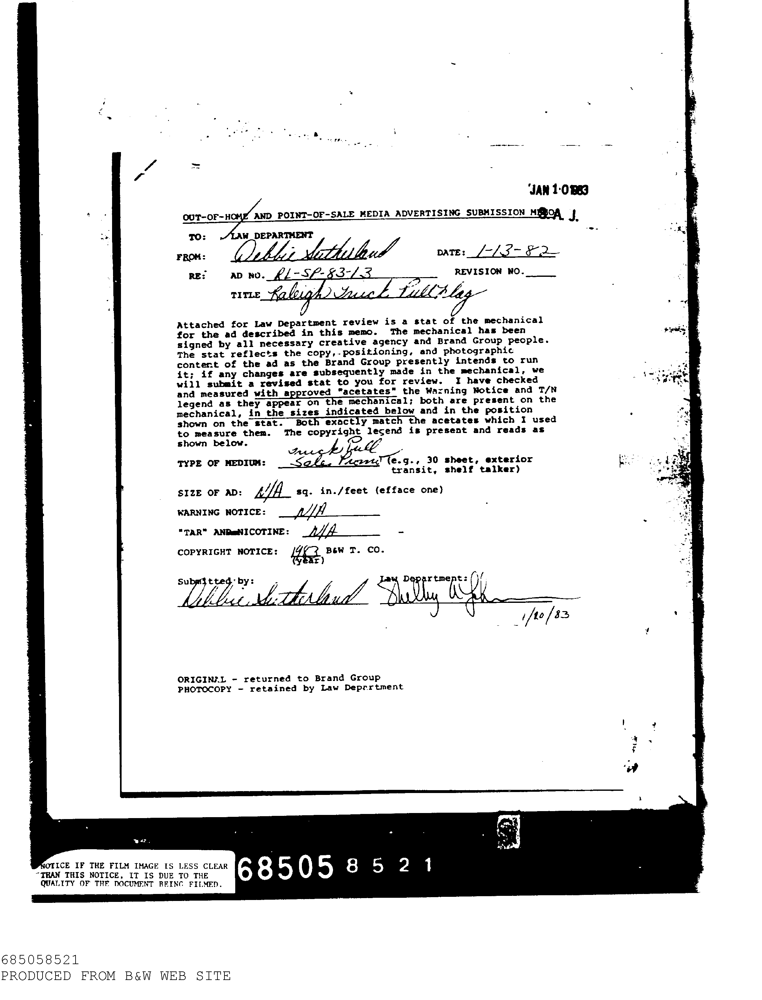 JAN 10 1983
OUT-OF-HOME AND POINT-OF-SALE MEDIA ADVERTISING SUBMISSION A. J.
TO: LAW DEPARTMENT
FROM: Debbie Sutherland DATE: 1-13-82
RE: AD NO. RL-SP-83-13 REVISION NO.
TITLE Raleigh Truck Pull Flag
Attached for Law Department review is a stat of the mechanical
for the ad described in this memo. The mechanical has been
signed by all necessary creative agency and Brand Group people.
The stat reflects the copy, positioning, and photographic
content of the ad as the Brand Group presently intends to run
it; if any changes are subsequently made in the mechanical, we
will submit a revised stat to you for review. I have checked
and measured with approved "acetates" the Warning Notice and T/N
legend as they appear on the mechanical; both are present on the
mechanical, in the sizes indicated below and in the position
shown on the stat. Both exactly match the acetates which I used
to measure them. The copyright legend is present and reads as
shown below.
Truck Pull
TYPE OF MEDIUM: Sales Promo (e.g., 30 sheet, exterior
transit, shelf talker)
SIZE OF AD: N/A sq. in./feet (efface one)
WARNING NOTICE: N/A
"TAR" AND NICOTINE: N/A
COPYRIGHT NOTICE: 1983 B&W T. CO.
(year)
Submitted by: Law Department:
Debbie Sutherland Shelby
1/20/83
ORIGINAL - returned to Brand Group
PHOTOCOPY - retained by Law Department
NOTICE IF THE FILM IMAGE IS LESS CLEAR
THAN THIS NOTICE, IT IS DUE TO THE
QUALITY OF THE DOCUMENT BEING FILMED.
685058521
685058521
PRODUCED FROM B&W WEB SITE